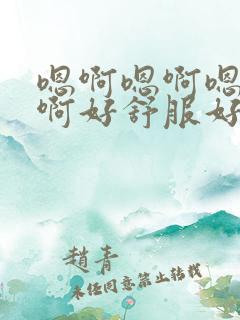 嗯啊嗯啊嗯
啊好舒服好
趙青
未经同意禁止转载